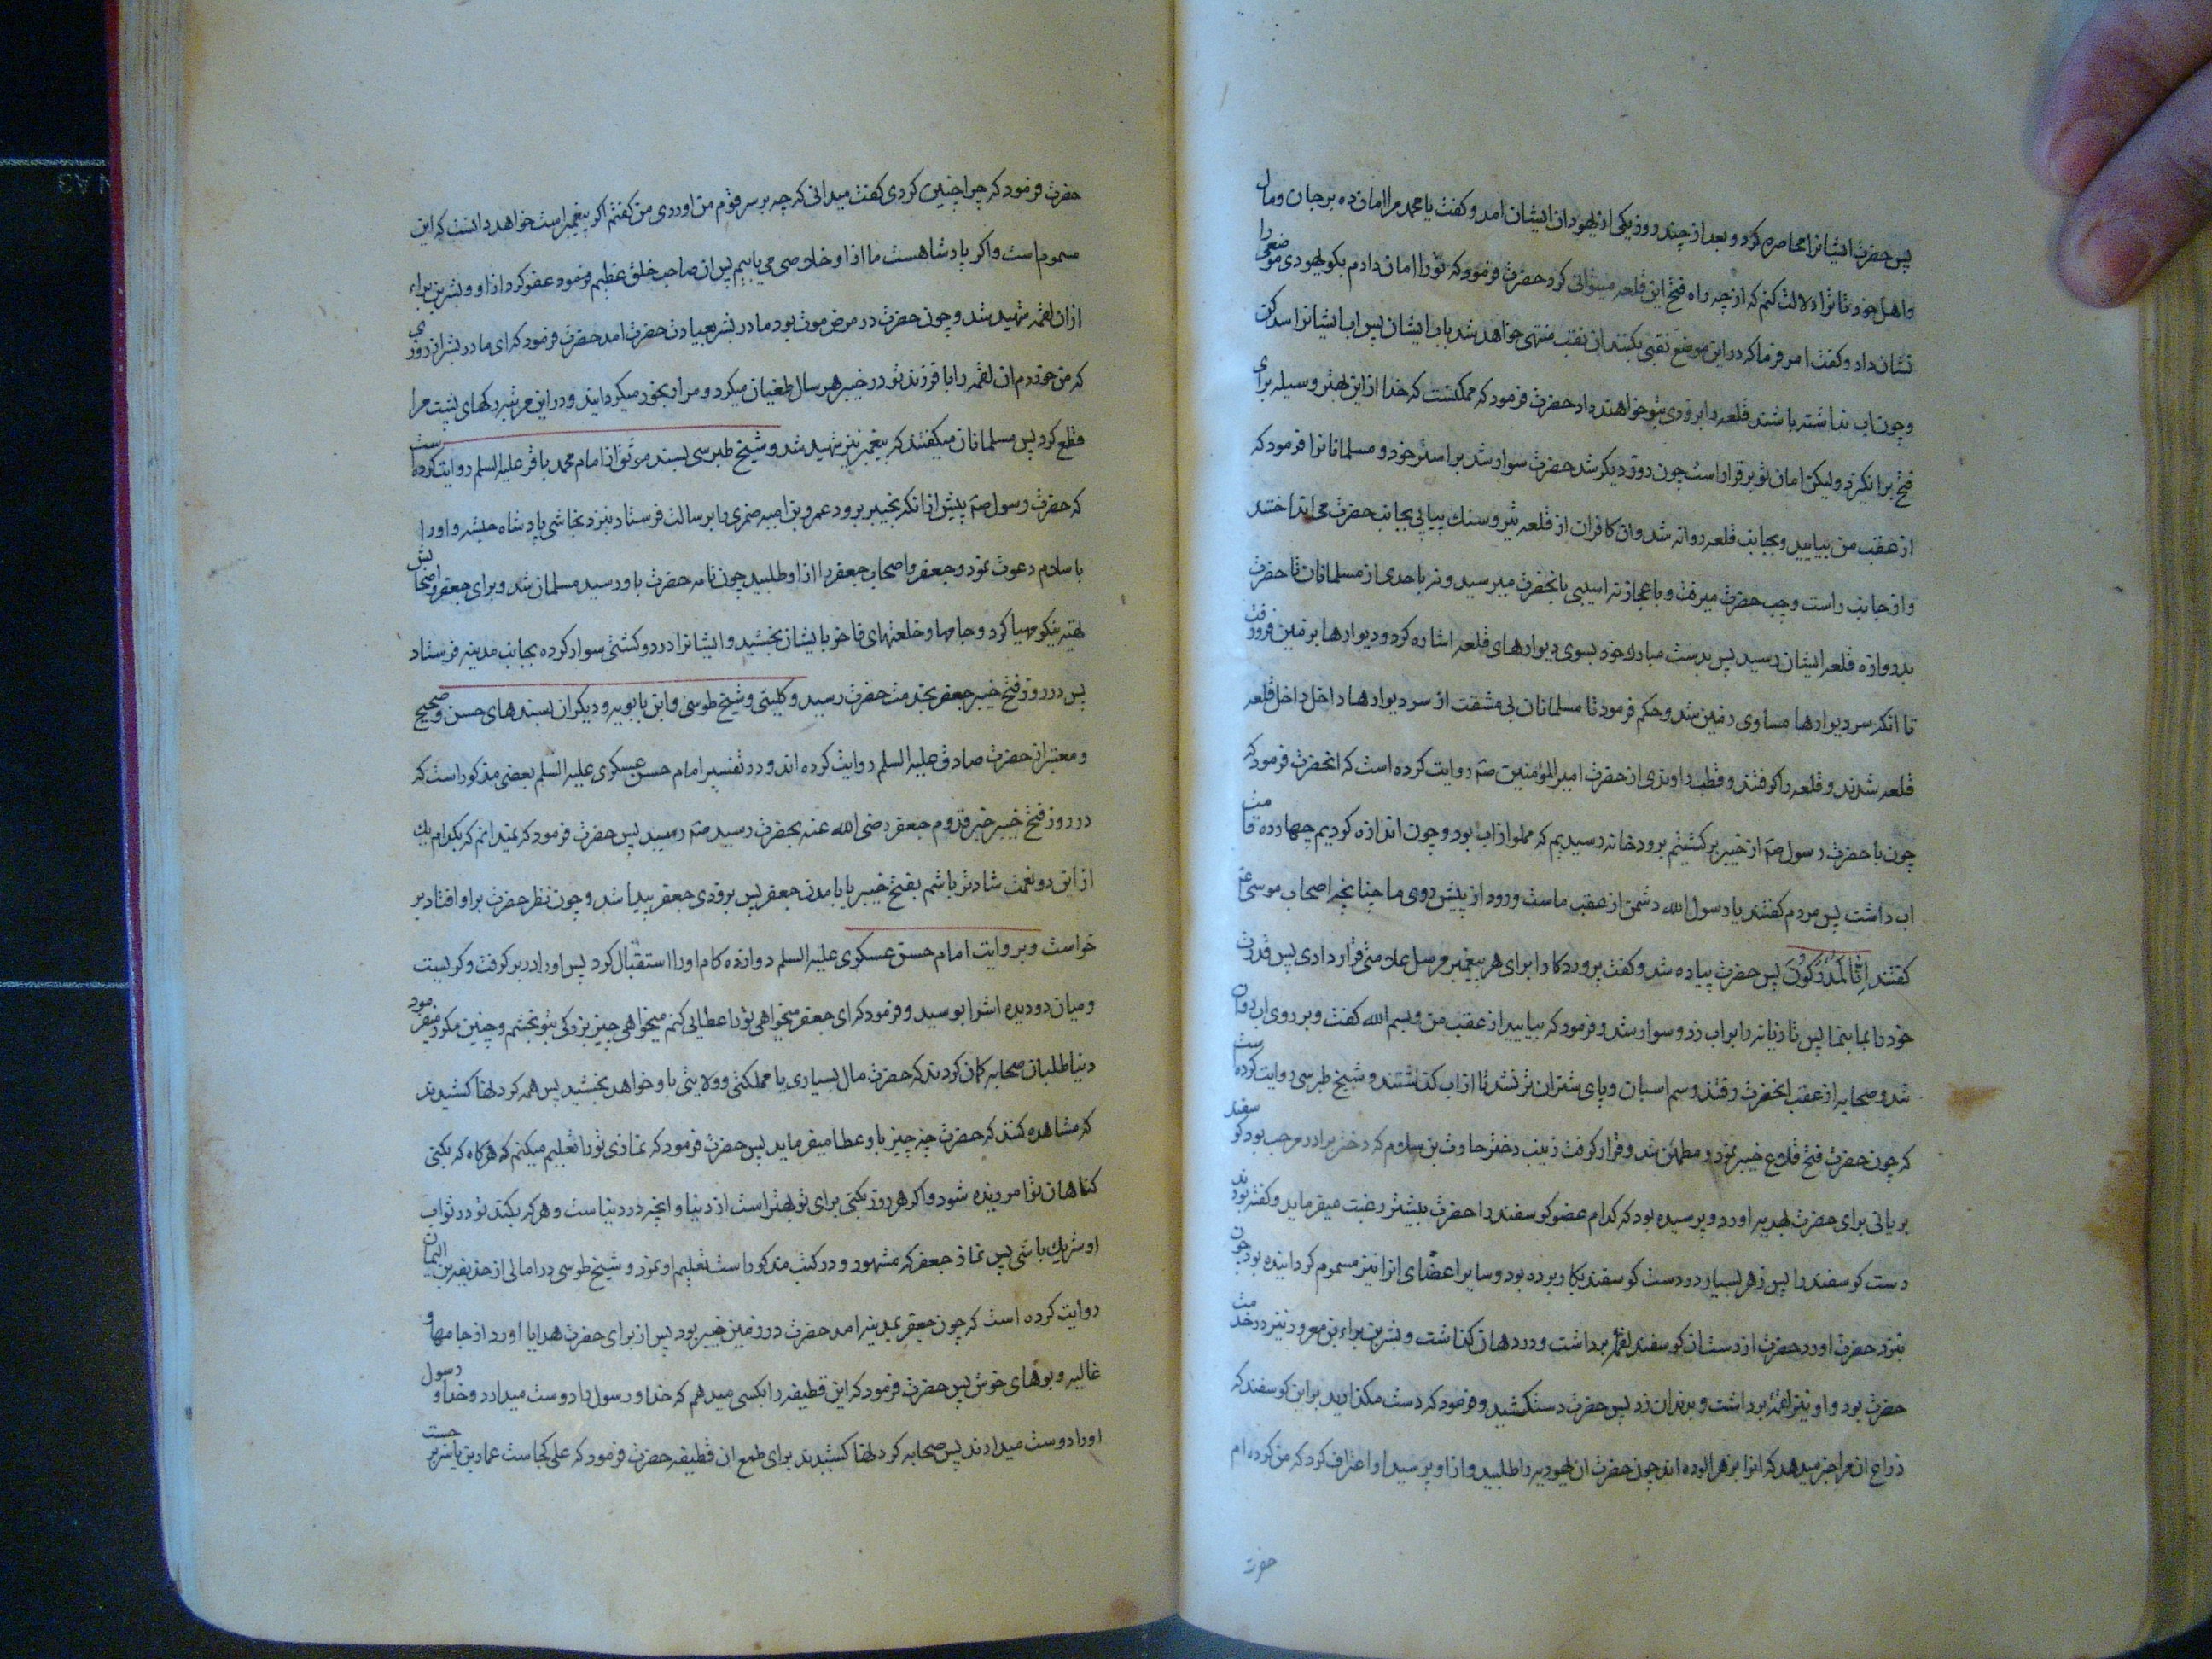 پس حضرت ایشانرا محاصره کرد و بعد از چند روز یکی از یهودان ایشان امد و کفت یا محمد مرا امان ده بر جان و مال
و اهل خود تا ترا دلالت کنم که از چه راه فتح این قلعه میتوانی کرد حضرت فرمود که ترا امان دادم بکو یهودی موضعی را
نشان داد و کفت امر فرما که در این موضع نقبی بکنند ان نقب منتهی خواهد شد باب ایشان پس اب ایشانرا سد کن
و چون اب نداشته باشند قلعه را بزودی بتو خواهند داد حضرت فرمود که ممکنست که خدا از این بهتر وسیله برای
فتح برانکیزد ولیکن امان تو برقرار است چون روز دیکر شد حضرت سوار شد بر استر خود و مسلمانانرا فرمود که
از عقب من بیایید و بجانب قلعه روانه شد و ان کافران از قلعه تیر و سنك پیاپی بجانب حضرت می انداختند
و از جانب راست و چپ حضرت میرفت و باعجاز نه اسیبی بانحضرت میرسید و نه باحدی از مسلمانان تا حضرت
بدروازه قلعه ایشان رسید پس بدست مبارك خود بسوی دیوارهای قلعه اشاره کرد و دیوارها بزمین فرو رفت
تا انکه سر دیوارها مساوی زمین شد و حکم فرمود تا مسلمانان بی مشقت از سر دیوارها داخل داخل قلعه
قلعه شدند و قلعه را کرفتند و قطب راوندی از حضرت امیرالمؤمنین صم روایت کرده است که انحضرت فرمود که
چون با حضرت رسول صم از خیبر برکشتیم برودخانه رسیدیم که مملو از اب بود و چون اندازه کردیم چهارده قامت
اب داشت پس مردم کفتند یا رسول الله دشمن از عقب ماست و رود از پیش روی ما چنانچه اصحاب موسی ع
کفتند اِنّا لَمُدرَکُونَ پس حضرت پیاده شد و کفت پروردکارا برای هر پیغمبر مرسل علامتی قرار دادی پس قدرت
خود را بما بنما پس تازیانه را براب زد و سوار شد و فرمود که بیایید از عقب من و بسم الله کفت و بر روی اب روان
شد و صحابه از عقب انحضرت رفتند و سم اسبان و پای شتران تر نشد تا از اب کذشتند و شیخ طبرسی روایت کرده است
که چون حضرت فتح قلاع خیبر نمود و مطمئن شد و قرار کرفت زینب دختر حارث بن سلام که دختر برادر مرحب بود کوسفند
بریانی برای حضرت بهدیه اورد و پرسیده بود که کدام عضو کوسفند را حضرت بیشتر رغبت میفرماید و کفته بودند
دست کوسفند را پس زهر بسیار در دست کوسفند بکار برده بود و سایر اعضای انرا نیز مسموم کردانیده بود چون
بنزد حضرت اورد حضرت از دست ان کوسفند لقمه برداشت و در دهان کذاشت و بشر بن براء بن معرور نیز در خدمت
حضرت بود و او نیز لقمه برداشت و بدندان زد پس حضرت دست کشید و فرمود که دست مکذارید بر این کوسفند که
ذراع ان مرا خبر میدهد که انرا بزهر الوده اند چون حضرت ان یهودیه را طلبید و از او پرسید او اعتراف کرد که من کرده ام
حضرت
حضرت فرمود که چرا چنین کردی کفت میدانی که چه بر سر قوم من اوردی من کفتم اکر پیغمبر است خواهد دانست که این
مسموم است و اکر پادشاهست ما از او خلاصی می یابیم پس ان صاحب خلق عظیم فرمود عفو کرد از او و بشر بن براء
از ان لقمه شهید شد و چون حضرت در مرض موت بود مادر بشر بعیادت حضرت امد حضرت فرمود که ای مادر بشر از روزی
که من خوردم ان لقمه را با فرزند تو در خیبر هر سال طغیان میکرد و مرا رنجور میکردانید و در این مرتبه رکهای پشت مرا
قطع کرد پس مسلمانان میکفتند که پیغمبر نیز شهید شد و شیخ طبرسی بسند موثق از امام محمد باقر علیه السلم روایت کرده است
که حضرت رسول صم پیش از انکه بخیبر برود عمرو بن امیه ضمری را برسالت فرستاد بنزد نجاشی پادشاه حبشه و او را
باسلام دعوت نمود و جعفر و اصحاب جعفر را از او طلبید چون نامه حضرت باو رسید مسلمان شد و برای جعفر و اصحابش
تهیه نیکو مهیا کرد و جامها و خلعتهای فاخر بایشان بخشید و ایشانرا در دو کشتی سوار کرده بجانب مدینه فرستاد
پس در روز فتح خیبر جعفر بخدمت حضرت رسید و کلینی و شیخ طوسی و ابن بابویه و دیکران بسندهای حسن و صحیح
و معتبر از حضرت صادق علیه السلم روایت کرده اند و در تفسیر امام حسن عسکری علیه السلم بعضی مذکور است که
در روز فتح خیبر خبر قدوم جعفر رضی الله عنه بحضرت رسید صم رسید پس حضرت فرمود که نمیدانم که بکدام یك
از این دو نعمت شادتر باشم بفتح خیبر یا بامدن جعفر پس بزودی جعفر پیدا شد و چون نظر حضرت براو افتاد بر
خواست و بروایت امام حسن عسکری علیه السلم دوازده کام او را استقبال کرد پس او را در بر کرفت و کریست
و میان دو دیده اش را بوسید و فرمود که ای جعفر میخواهی تو را عطائی کنم میخواهی چیز بزرکی بتو بخشم و چنین مکرر میفرمود
دنیا طلبان صحابه کمان کردند که حضرت مال بسیاری یا مملکتی و ولایتی باو خواهد بخشید پس همه کردنها کشیدند
که مشاهده کنند که حضرت چه چیز باو عطا میفرماید پس حضرت فرمود که نمازی تو را تعلیم میکنم که هرکاه که بکنی
کناهان تو امرزیده شود و اکر هر روز بکنی برای تو بهتر است از دنیا و انچه در دنیاست و هرکه بکند تو در ثواب
او شریك باشی پس نماز جعفر که مشهور و در کتب مذکور است تعلیم او نمود و شیخ طوسی در امالی از حذیفه بن الیمان
روایت کرده است که چون جعفر بمدینه امد حضرت در زمین خیبر بود پس از برای حضرت هدایا اورد از جامها و
غالیه و بوهای خوش پس حضرت فرمود که این قطیفه را بکسی میدهم که خدا و رسول را دوست میدارد و خدا و رسول
او را دوست میدارند پس صحابه کردنها کشیدند برای طمع ان قطیفه حضرت فرمود که علی کجاست عمار بن یاسر بر جست